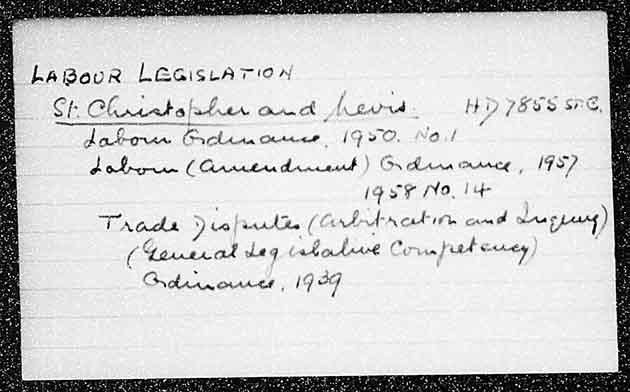 LABOUR LEGISLATION
St. Christopher and Nevis. HD 7855 ST.C.
Labour Ordinance, 1950. No. 1
Labour (Amendment) Ordinance, 1957
1958 No. 14
Trade Disputes (Arbitration and Inquiry)
(General Legislative Competency)
Ordinance, 1939